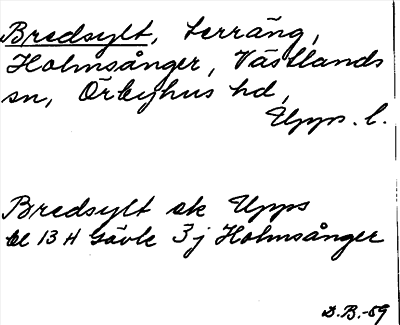 Bredsylt, Terräng,
Holmsånger, Västlands
sn, Örbyhus hd,
Upps. l.
Bredsylt ek Upps
bl 13 H Gävle 3j Holmsånger
D.B.-59